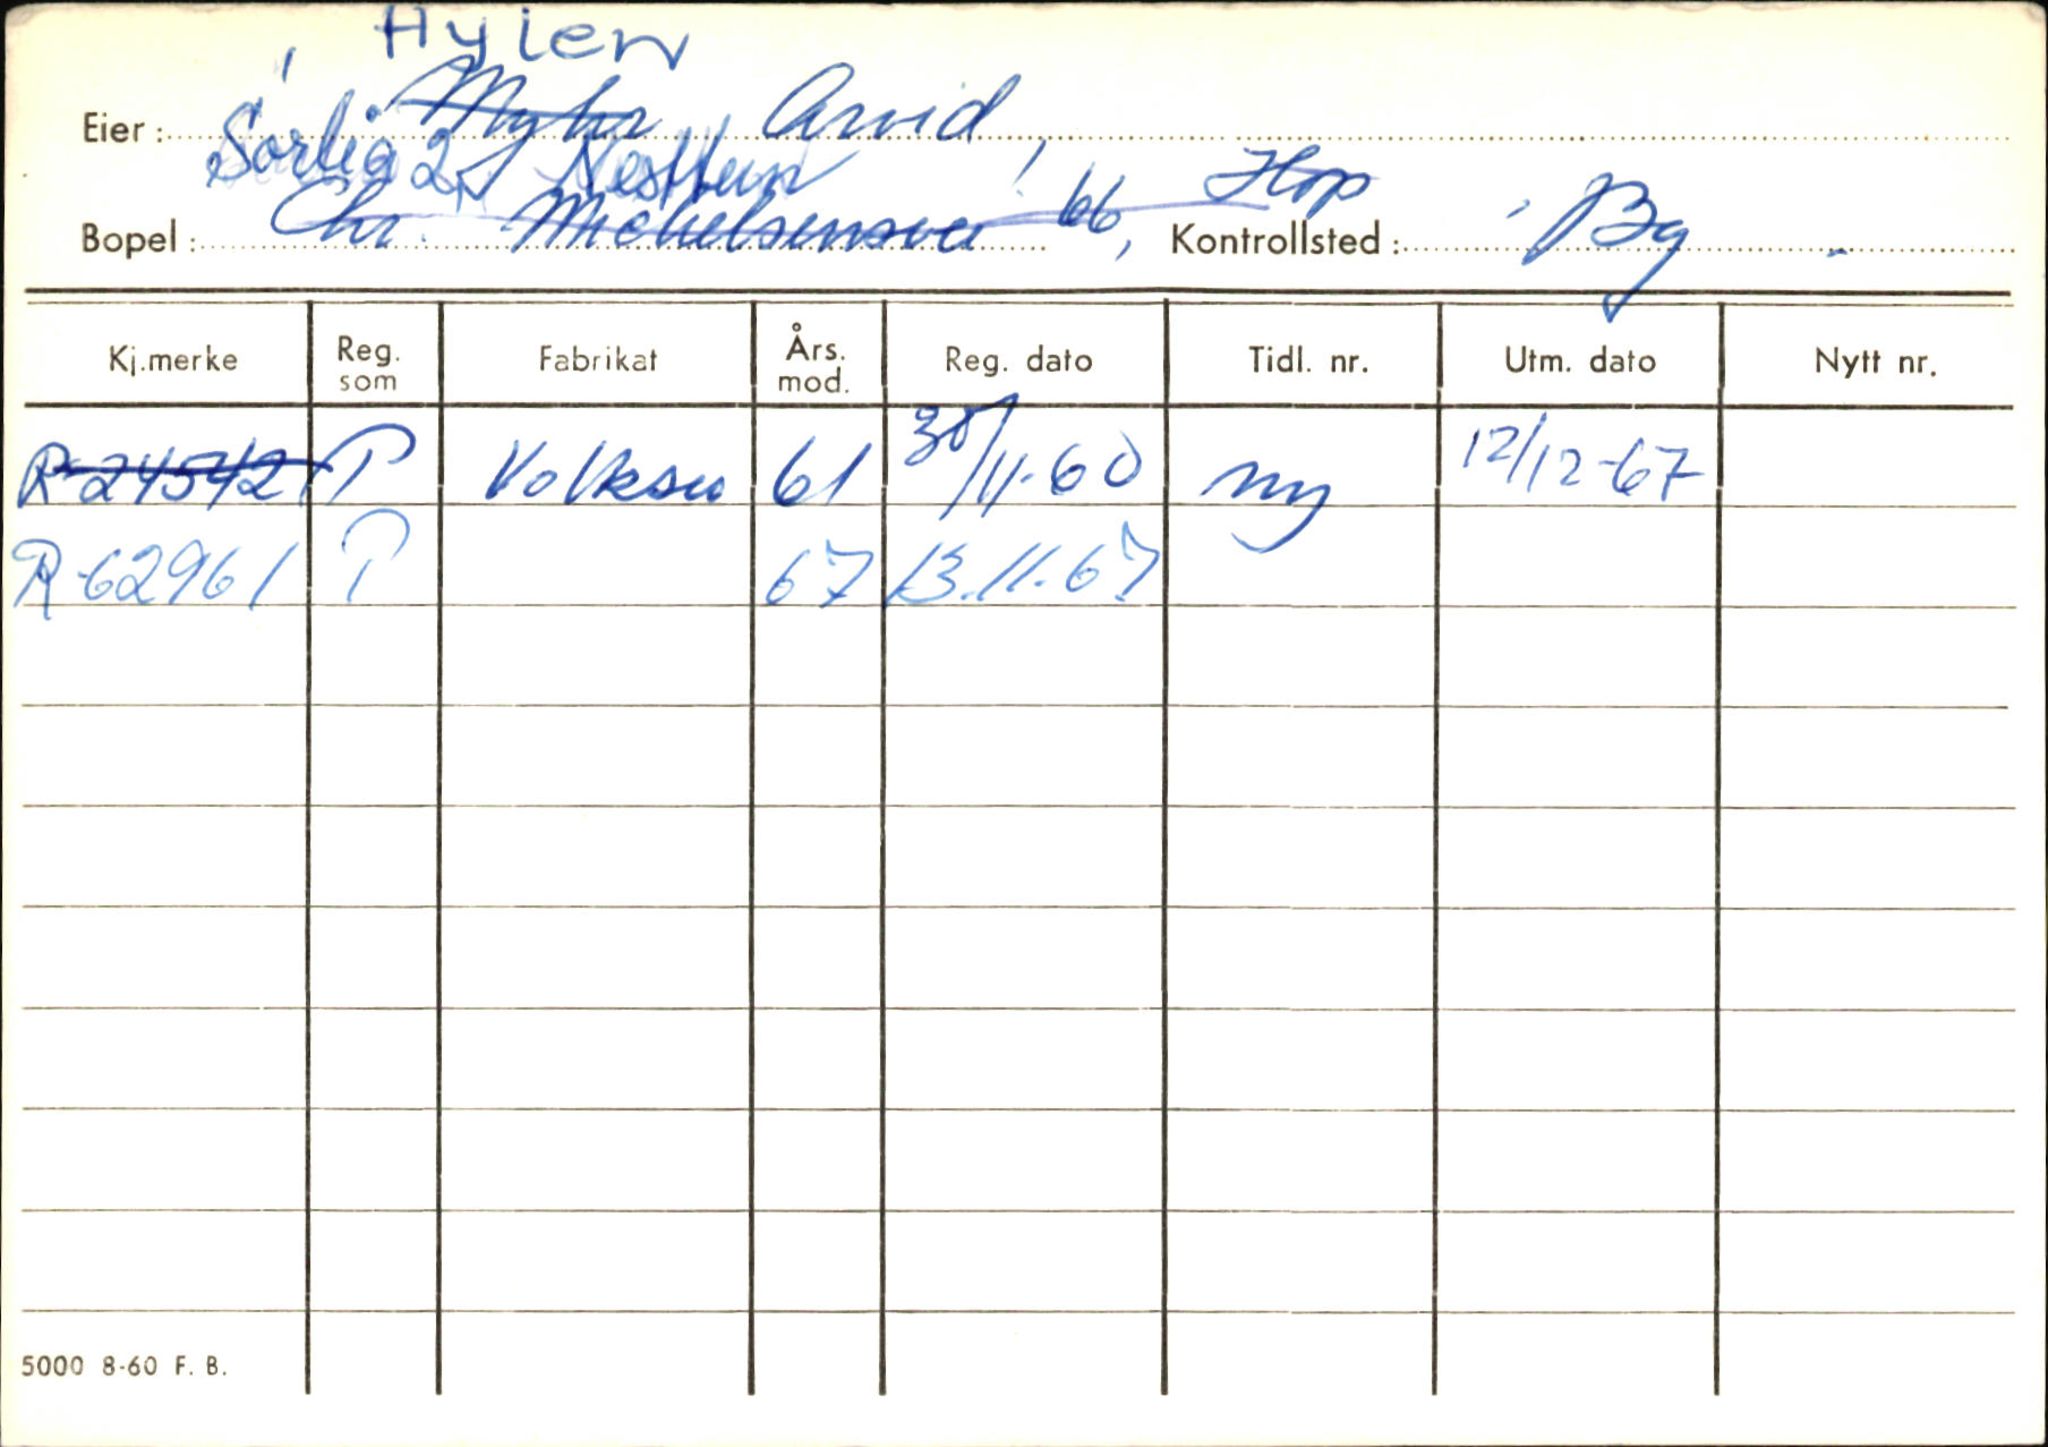 Hylen
Eier: Myhr Arvid,
Sørlia 2, Nesttun
Bopel: Chr. Michelsensvei 66, Hop Kontrollsted: Bg
Kj.merke Reg. som Fabrikat Års. mod. Reg. dato Tidl. nr. Utm. dato Nytt nr.
R-24542 P Volksw 61 30/11-60 ny 12/12-67
R-62961 P 67 13.11.67
5000 8-60 F. B.